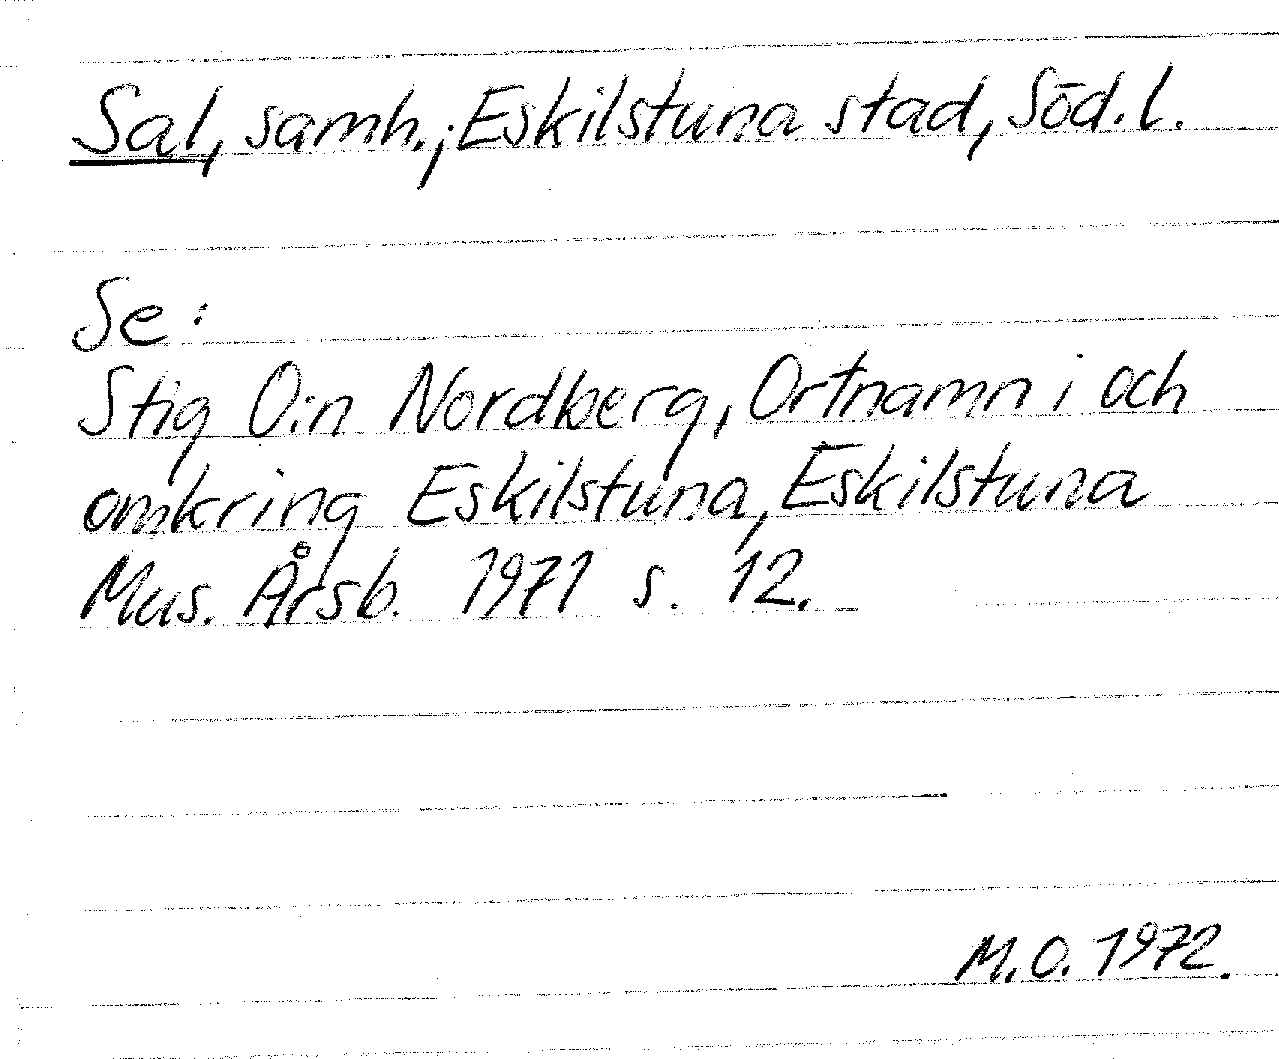 Sal, samh., Eskilstuna stad, Söd. l.
Se:
Stig O:n Nordberg, Ortnamn i och
omkring Eskilstuna, Eskilstuna
Mus. Årsb. 1971 s. 12.
M.O. 1972.